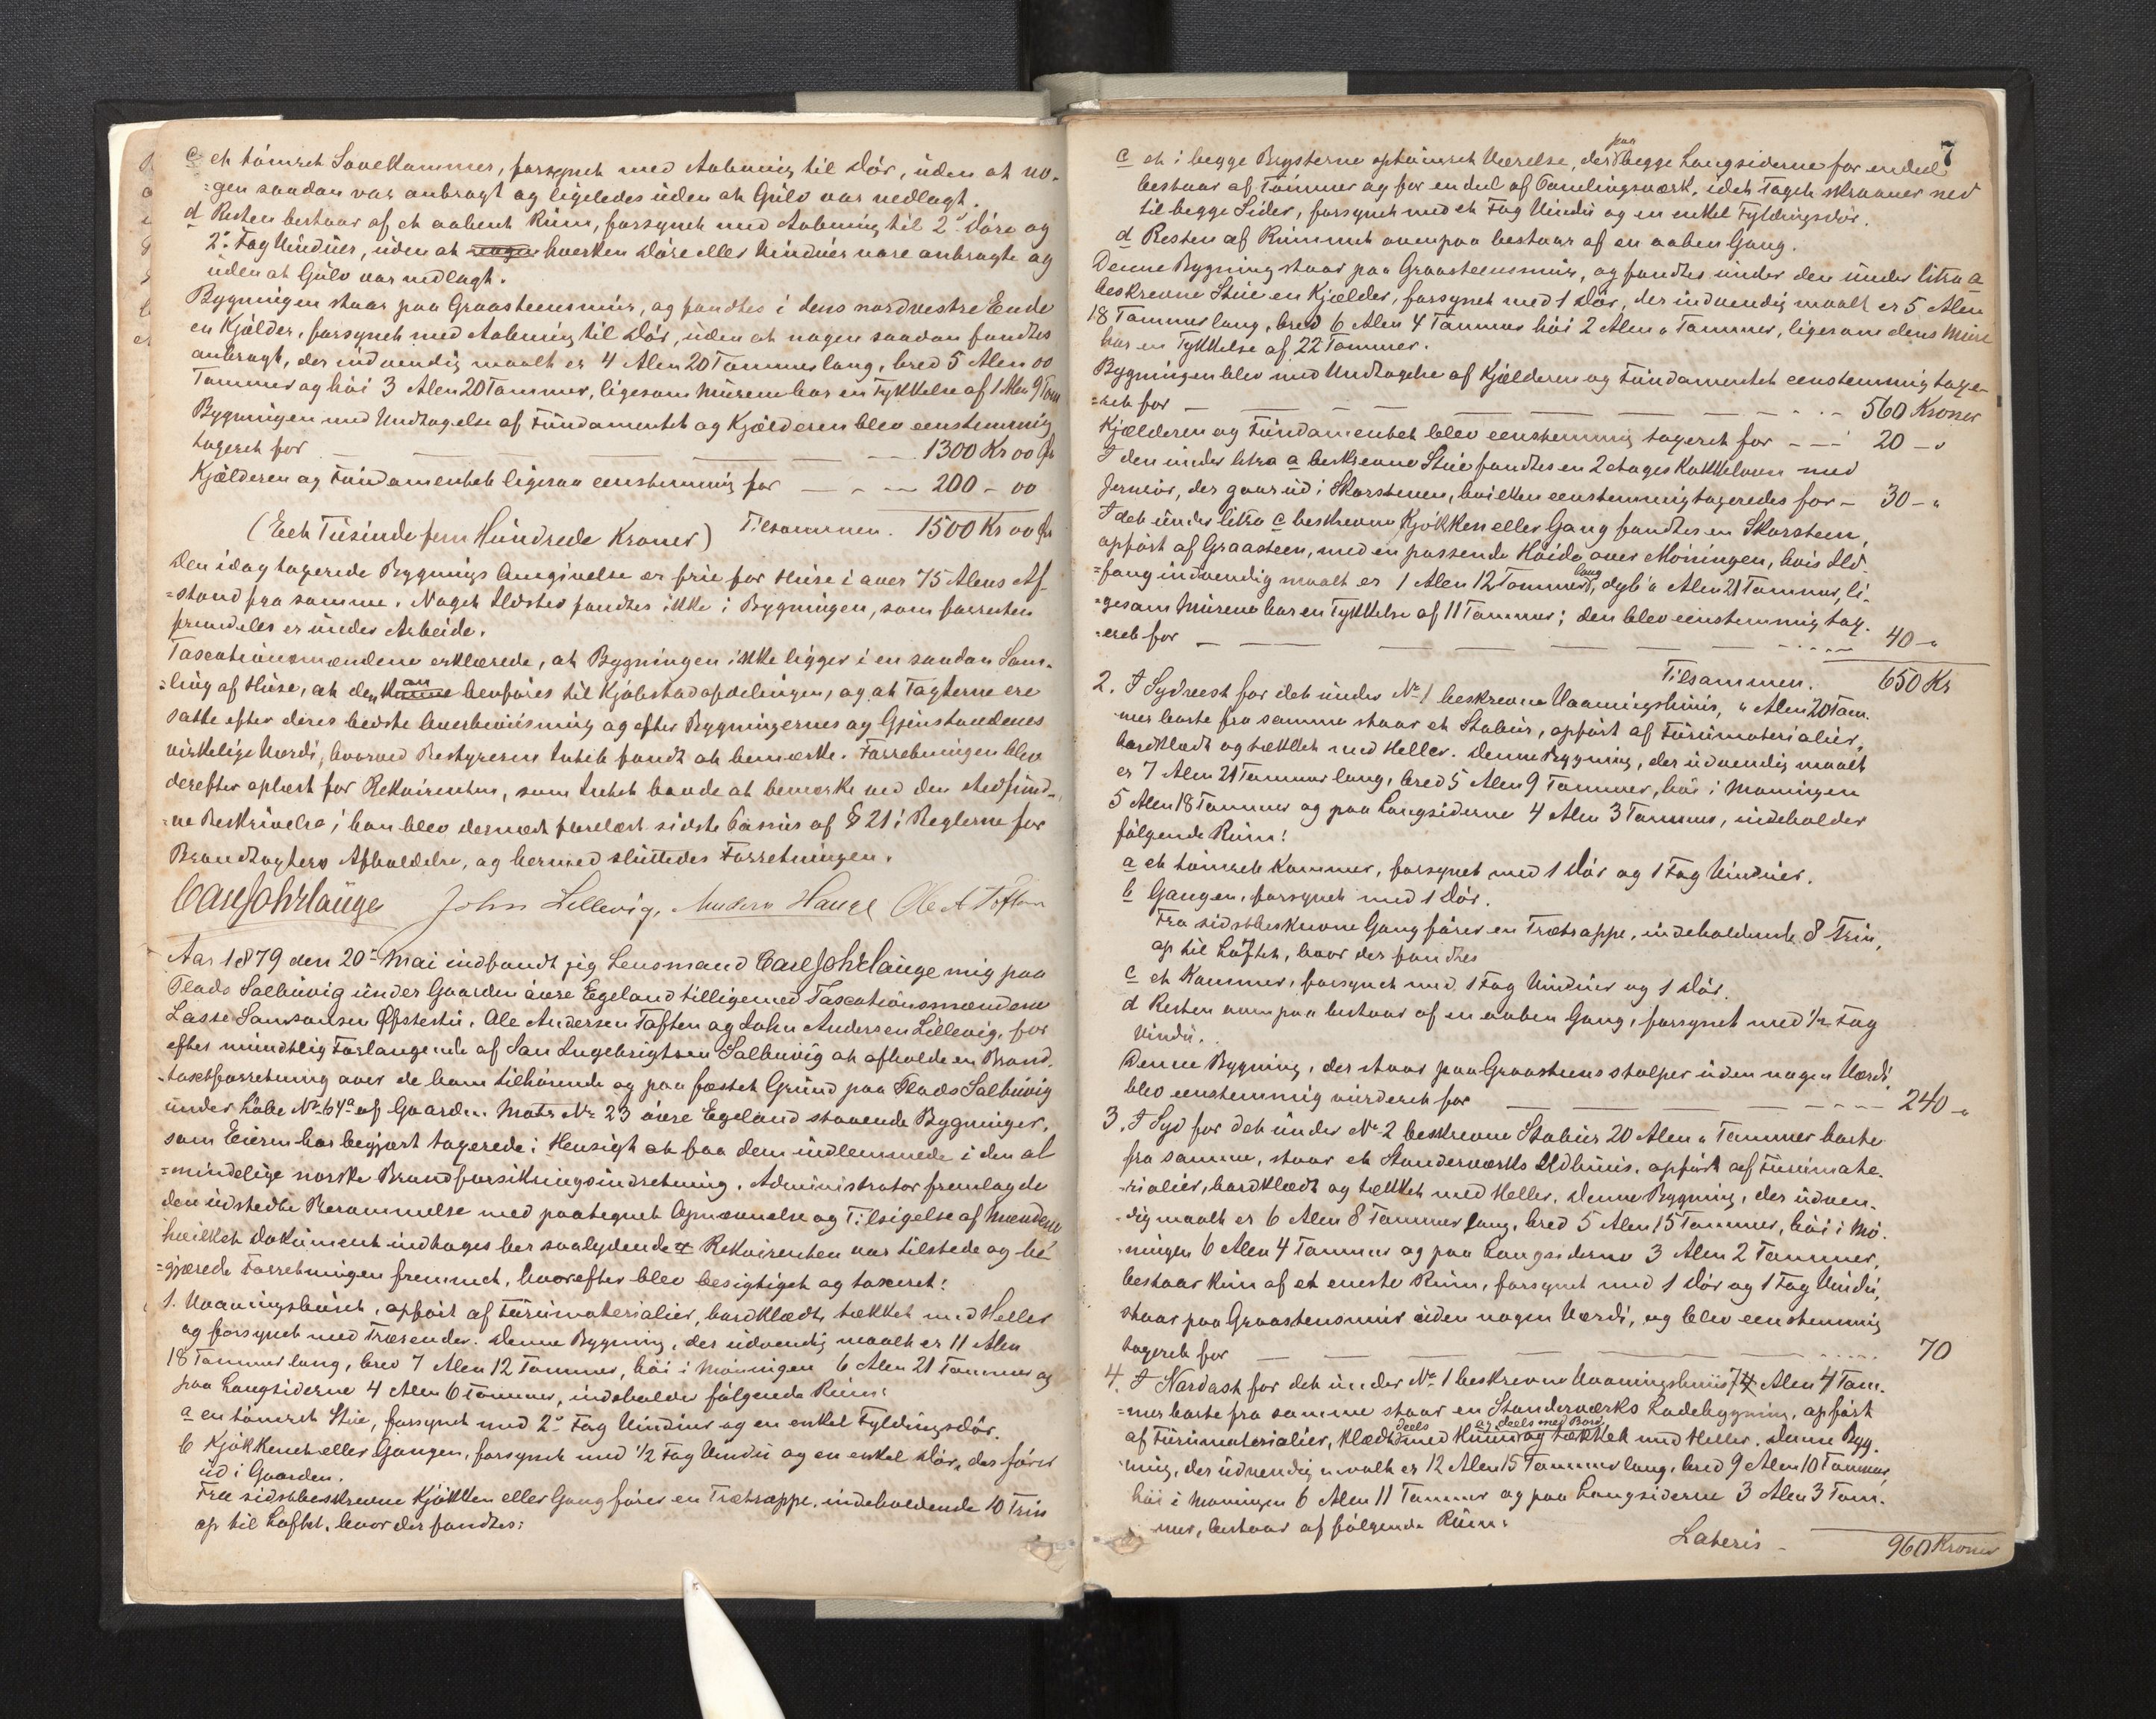 c et tømret Sovekammer, forsynet med Aabning til Dør, uden at no-
=gen saadan var anbragt og ligeledes uden at Gulv var nedlagt.
d Resten bestaar af et aabent Rum, forsynet med Aabning til 2de Døre og
2de Fag Vinduer, uden at nogen hverken Døre eller Vinduer vare anbragte og
uden at Gulv var nedlagt.
Bygningen staar paa Graasteensmur, og fandtes i dens nordvestre Ende
en Kjælder, forsynet med Aabning til Dør, uden at nogen saadan fandtes
anbragt, der indvendig maalt er 4 Alen 20 Tommer lang, bred 5 Alen 00
Tommer og høi 3 Alen 20 Tommer, ligesom Muren har en Tykkelse af 1 Alen 9 Tom
Bygningen med Undtagelse af Fundamentet og Kjælderen blev eenstemmig
taxeret for — — — 1300 Kr 00 Ør
Kjælderen og Fundamentet ligesaa eenstemmig for — — — 200 – 00
(Eet Tusinde fem Hundrede Kroner) Tilsammen. 1500 Kr 00 Ør
Den idag taxerede Bygnings Omgivelse er frie for Huse i over 75 Alens Af-
=stand fra samme. Noget Ildsted fandtes ikke i Bygningen, som forresten
fremdeles er under Arbeide.
Taxationsmændene erklærede, at Bygningen ikke ligger i en saadan Sam-
=ling af Huse, at den kunne an henføres til Kjøbstadafdelingen, og at Taxterne ere
satte efter deres bedste Overbeviisning og efter Bygningernes og Gjenstandenes
virkelige Værdi, hvorved Bestyreren Intet fandt at bemærke. Forretningen blev
derefter oplæst for Rekvirenten, som Intet havde at bemærke ved den stedfund-
=ne Beskrivelse; han blev dernæst forelæst sidste Passus af § 21 i Reglerne for
Brandtaxters Afholdelse, og hermed sluttedes Forretningen.
Carl Johr Lange John Lillevig, Anders Hauge Ole A Toften
Aar 1879 den 20de Mai indfandt sig Lensmand Carl Johr Lange mig paa
Plads Salbuvig under Gaarden øvre Egeland tilligemed Taxationsmændene
Lasse Samsonsen Øfstestu, Ole Andersen Toften og John Andersen Lillevig, for
efter mundtlig Forlangende af Jan Ingebrigtsen Salbuvig at afholde en Brand-
=taxtforretning over de ham tilhørende og paa fæstet Grund paa Plads Salbuvig
under Løbe No 64a af Gaarden Matr No 23 øvre Egeland staaende Bygninger,
som Eieren har begjært taxerede i Hensigt at faa dem indlemmede i den al-
=mindelige norske Brandforsikringsindretning. Administrator fremlagde
den udstedte Berammelse med paategnet Opnævnelse og Tilsigelse af Mændene
hvilket Dokument indtages her saalydende # Rekvirenten var tilstede og be-
=gjærede Forretningen fremmet, hvorefter blev besigtiget og taxeret:
1. Vaaningshuset, opført af Furumaterialier, bordklædt, tækket med Heller
og forsynet med Trærender. Denne Bygning, der udvendig maalt er 11 Alen
18 Tommer lang, bred 7 Alen 12 Tommer, høi i Møningen 6 Alen 21 Tommer og
paa Langsiderne 4 Alen 6 Tommer, indeholder følgende Rum:
a en tømret Stue, forsynet med 2de Fag Vinduer og en enkel Fyldingsdør.
b Kjøkkenet eller Gangen, forsynet med 1/2 Fag Vindu og en enkel Dør, der fører
ud i Gaarden.
Fra sidstbeskrevne Kjøkken eller Gang fører en Trætrappe, indeholdende 10 Trin
op til Loftet, hvor der fandtes:
7
c et i begge Brysterne optømret Værelse, der paa begge Langsiderne for endeel
bestaar af Tømmer og for en deel af Panelingsværk, idet Taget skraaner ned
til begge Sider, forsynet med et Fag Vindu og en enkel Fyldingsdør.
d Resten af Rummet ovenpaa bestaar af en aaben Gang.
Denne Bygning staar paa Graasteensmur, og fandtes under den under litra a
beskrevne Stue en Kjælder, forsynet med 1 Dør, der indvendig maalt er 5 Alen
18 Tommer lang, bred 6 Alen 4 Tommer høi 2 Alen " Tommer, ligesom dens Mure
har en Tykkelse af 22 Tommer.
Bygningen blev med Undtagelse af Kjælderen og Fundamentet eenstemmig taxe-
=ret for — — — 560 Kroner
Kjælderen og Fundamentet blev eenstemmig taxeret for — — 20 – "
I den under litra a beskrevne Stue fandtes en 2 etages Kakkelovn med
Jernrør, der gaar ud i Skorstenen, hvilken eenstemmig taxeredes for — 30 – "
I det under litra c beskrevne Kjøkken eller Gang fandtes en Skorsteen,
opført af Graasteen, med en passende Høide over Møningen, hvis Ild-
=fang indvendig maalt er 1 Alen 12 Tommer lang, dyb " Alen 21 Tommer, li-
=gesom Murene har en Tykkelse af 11 Tommer; den blev eenstemmig tax-
=eret for — — — 40 – "
Tilsammen. 650 Kr
2. I Sydvest for det under No 1 beskrevne Vaaningshuus, " Alen 20 Tom-
mer borte fra samme staar et Stabur, opført af Furumaterialier,
bordklædt og tækket med Heller. Denne Bygning, der udvendig maalt
er 7 Alen 21 Tommer lang, bred 5 Alen 9 Tommer, høi i Møningen
5 Alen 18 Tommer og paa Langsiderne 4 Alen 3 Tommer, indeholder
følgende Rum:
a et tømret Kammer, forsynet med 1 Dør og 1 Fag Vinduer.
b Gangen, forsynet med 1 Dør.
Fra sidstbeskrevne Gang fører en Trætrappe, indeholdende 8 Trin,
op til Loftet, hvor der fandtes
c et Kammer, forsynet med 1 Fag Vinduer og 1 Dør.
d Resten ovenpaa bestaar af en aaben Gang, forsynet med 1/2 Fag
Vindu.
Denne Bygning, der staar paa Graasteens stolper uden nogen Værdi,
blev eenstemmig vurderet for — — — 240 – "
3. I Syd for det under No 2 beskrevne Stabur 20 Alen " Tommer borte
fra samme, staar et Standerværks Ildhuus, opført af Furumate-
=rialier, bordklædt og tækket med Heller. Denne Bygning, der udven-
dig maalt er 6 Alen 8 Tommer lang, bred 5 Alen 15 Tommer, høi i Mø-
ningen 6 Alen 4 Tommer og paa Langsiderne 3 Alen 2 Tommer,
bestaar kun af et eneste Rum, forsynet med 1 Dør og 1 Fag Vindu,
staar paa Graastensmur uden nogen Værdi, og blev eenstemmig
taxeret for — — — 70
4. I Nordost for det under No 1 beskrevne Vaaningshuus 74 Alen 4 Tom-
=mer borte fra samme staar en Standerværks Ladebygning, opført
af Furumaterialier, klædt deels med Huun og deels med Bord og tækket med Heller. Denne Byg-
ning, der udvendig maalt er 12 Alen 15 Tommer lang, bred 9 Alen 10 Tommer
høi i Møningen 6 Alen 11 Tommer og paa Langsiderne 3 Alen 3 Tom-
mer, bestaar af følgende Rum:
Lateris — 960 Kroner